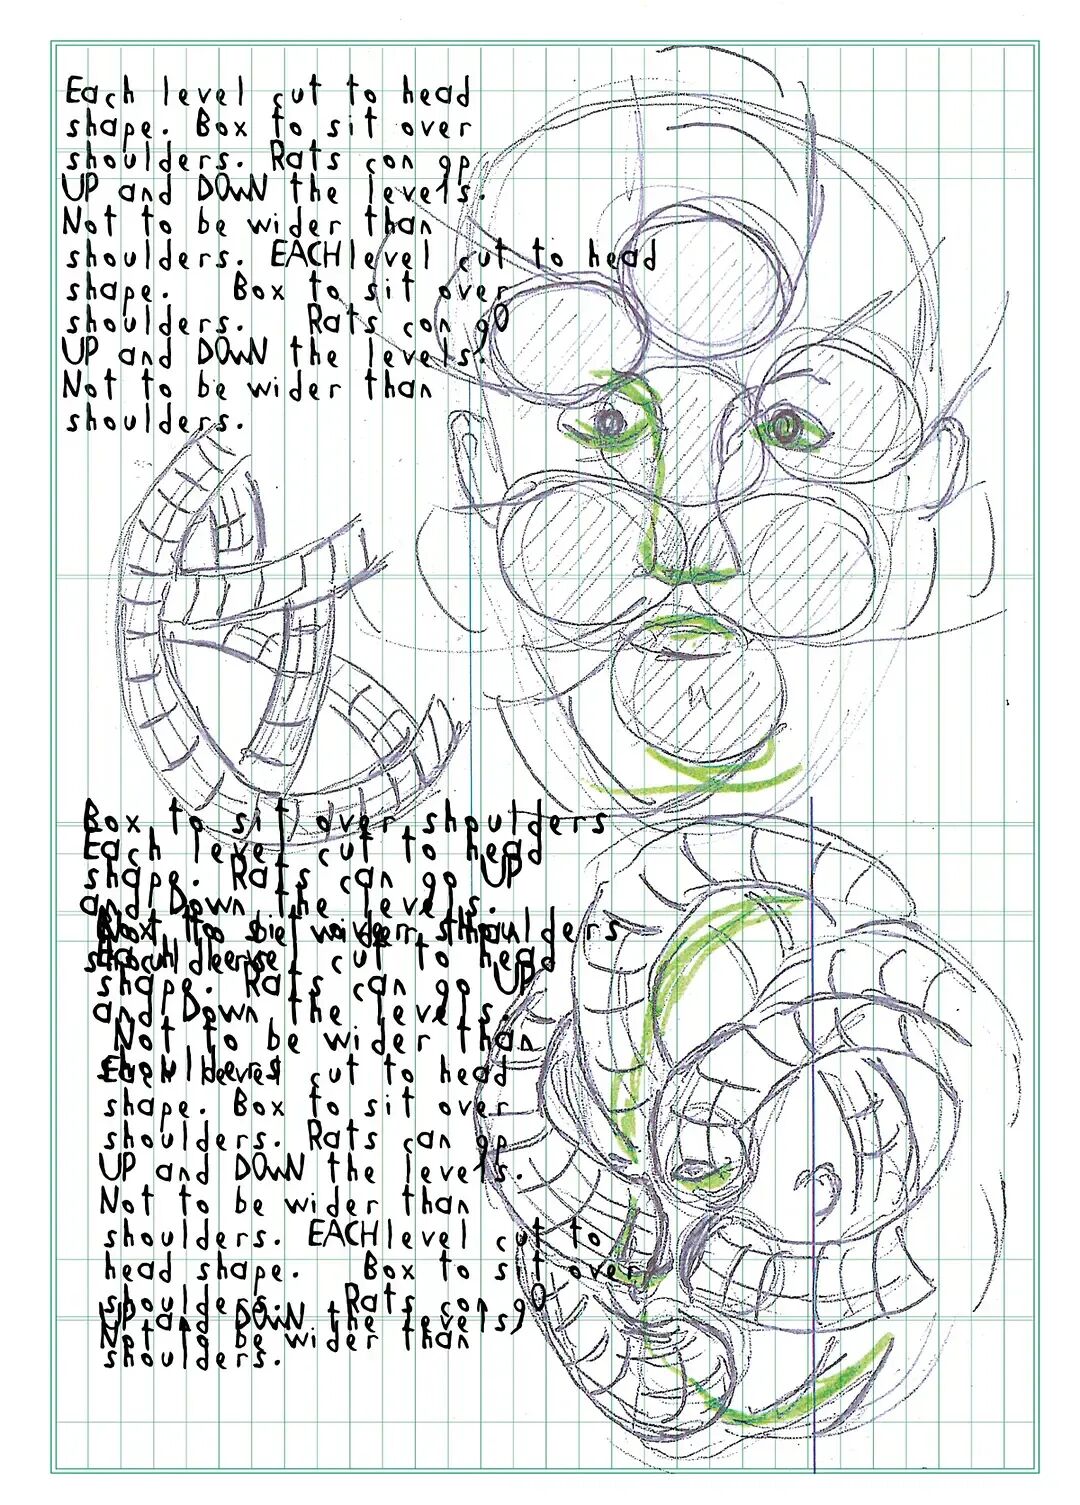 Each level cut to head
shape. Box to sit over
shoulders. Rats con go
UP and DOWN the levels.
Not to be wider than
shoulders. EACH level cut to head
shape. Box to sit over
shoulders. Rats con gO
UP and DOWN the levels,
Not to be wider than
shoulders.
Box to sit over shoulders
Each level cut to head
shape. Rats can go UP
and Down the levels.
Box to sit over shoulders
cut to head
shape. Rats can go UP
and Down the levels.
Not to be wider than
cut to head
shape. Box to sit over
shoulders. Rats can go
UP and DOWN the levels.
Not to be wider than
shoulders. EACH level cut to
head shape. Box to sit over
shoulders. Rats con gO
UP and DOWN the levels,
Not to be wider than
shoulders.